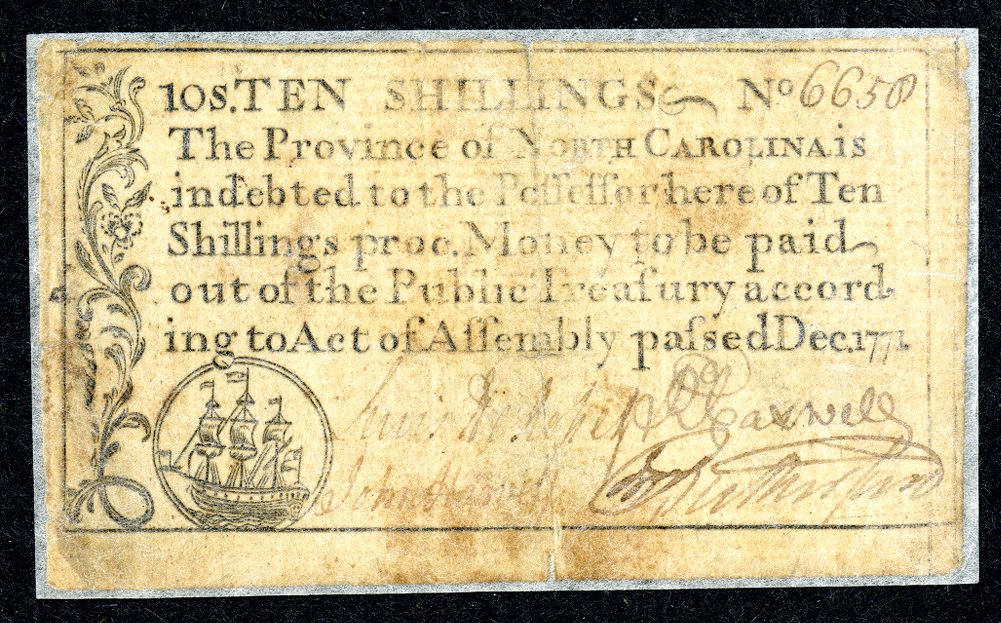 10S. TEN SHILLINGS No 6658
The Province of NORTH CAROLINA is
indebted to the Poſſeſſor here of Ten
Shillings proc. Money to be paid
out of the Public Treaſury accord
ing to Act of Aſſembly paſsed Dec. 1771.
Lewis De Roſset
Rutherfurd